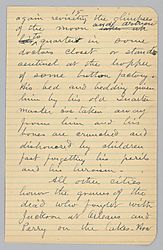 18
again revisiting the glimpses
of the moon and around
into quarters in some
doctors closet or stands
sentinel at the hopper
of some button factory.
His bed and bedding given
him by his old Quarter
master, are taken away
from him and his
bones are crunched and
dishonored by children
fast forgetting his perils
and his heroism.
All other cities
honor the graves of the
dead who fought with
Jackson at Orleans and
Perry on the lakes. Now